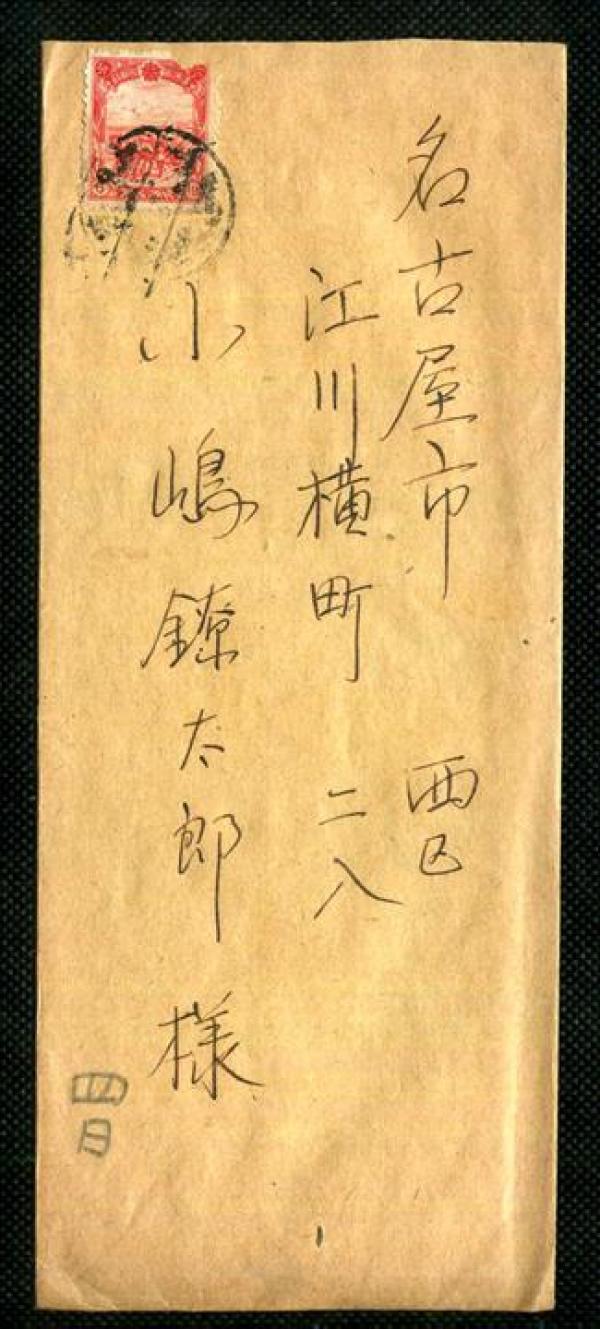 名古屋市 西区
江川横町 二八
小嶋鐐太郎様
四日